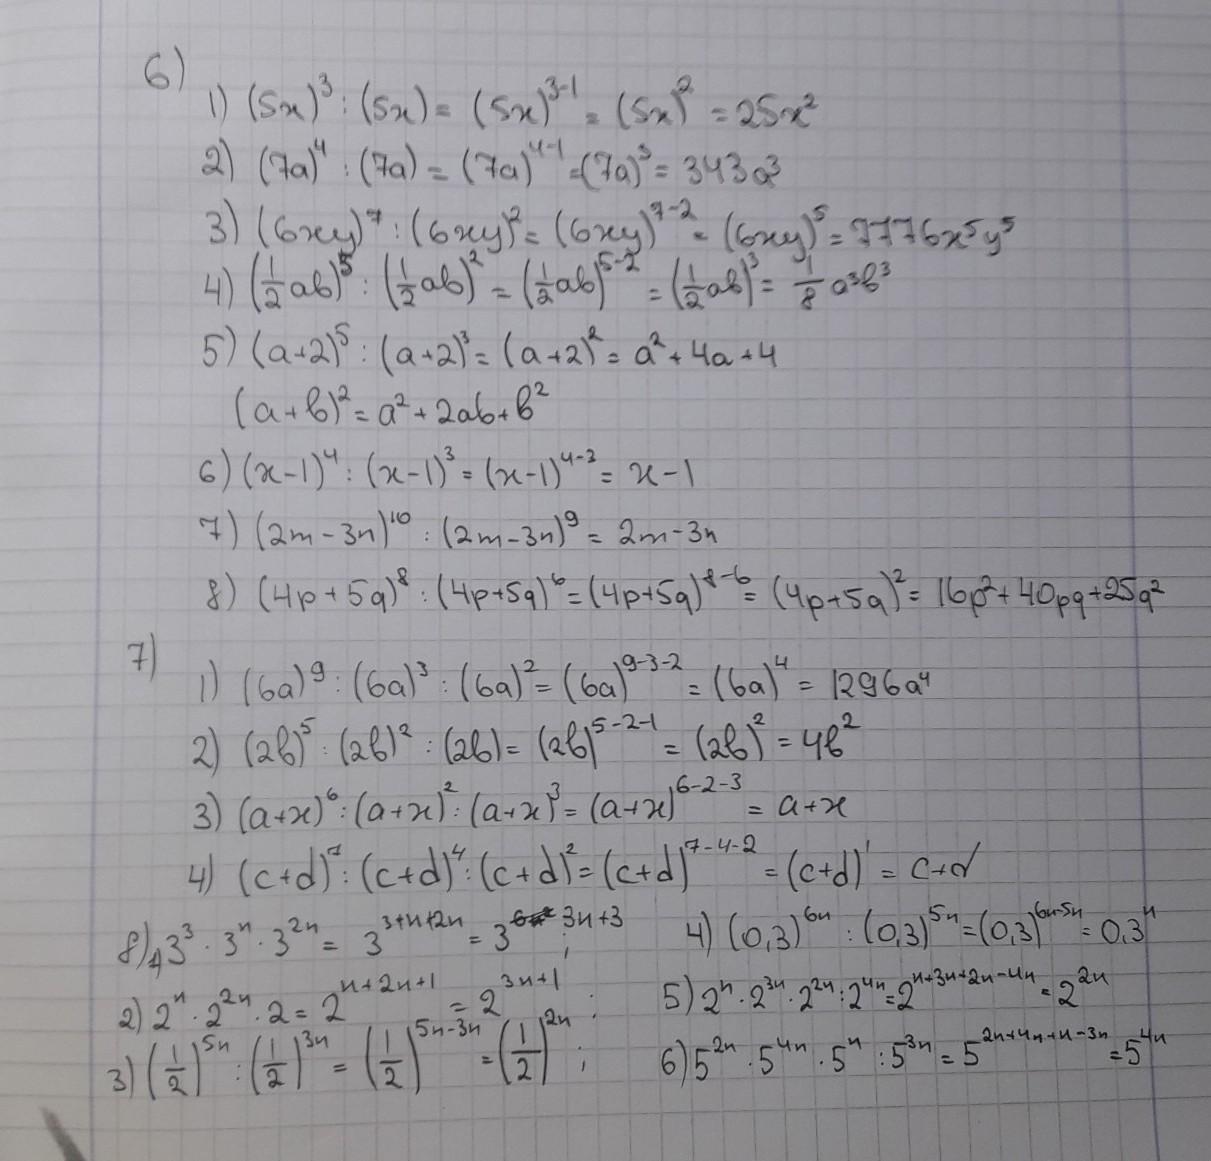 6)
1) (5x)³ : (5x) = (5x)³⁻¹ = (5x)² = 25x²
2) (7a)⁴ : (7a) = (7a)⁴⁻¹ = (7a)³ = 343a³
3) (6xy)⁷ : (6xy)² = (6xy)⁷⁻² = (6xy)⁵ = 7776x⁵y⁵
4) (1/2 ab)⁵ : (1/2 ab)² = (1/2 ab)⁵⁻² = (1/2 ab)³ = 1/8 a³b³
5) (a+2)⁵ : (a+2)³ = (a+2)² = a² + 4a + 4
(a+b)² = a² + 2ab + b²
6) (x-1)⁴ : (x-1)³ = (x-1)⁴⁻³ = x-1
7) (2m-3n)¹⁰ : (2m-3n)⁹ = 2m-3n
8) (4p+5q)⁸ : (4p+5q)⁶ = (4p+5q)⁸⁻⁶ = (4p+5q)² = 16p² + 40pq + 25q²
7)
1) (6a)⁹ : (6a)³ : (6a)² = (6a)⁹⁻³⁻² = (6a)⁴ = 1296a⁴
2) (2b)⁵ : (2b)² : (2b) = (2b)⁵⁻²⁻¹ = (2b)² = 4b²
3) (a+x)⁶ : (a+x)² : (a+x)³ = (a+x)⁶⁻²⁻³ = a+x
4) (c+d)⁷ : (c+d)⁴ : (c+d)² = (c+d)⁷⁻⁴⁻² = (c+d)¹ = c+d
8) 1) 3³ · 3ⁿ · 3²ⁿ = 3³⁺ⁿ⁺²ⁿ = 3³ⁿ⁺³ ;
2) 2ⁿ · 2²ⁿ · 2 = 2ⁿ⁺²ⁿ⁺¹ = 2³ⁿ⁺¹ ;
3) (1/2)⁵ⁿ : (1/2)³ⁿ = (1/2)⁵ⁿ⁻³ⁿ = (1/2)²ⁿ ;
4) (0,3)⁶ⁿ : (0,3)⁵ⁿ = (0,3)⁶ⁿ⁻⁵ⁿ = 0,3ⁿ
5) 2ⁿ · 2³ⁿ · 2²ⁿ : 2⁴ⁿ = 2ⁿ⁺³ⁿ⁺²ⁿ⁻⁴ⁿ = 2²ⁿ
6) 5²ⁿ · 5⁴ⁿ · 5ⁿ : 5³ⁿ = 5²ⁿ⁺⁴ⁿ⁺ⁿ⁻³ⁿ = 5⁴ⁿ